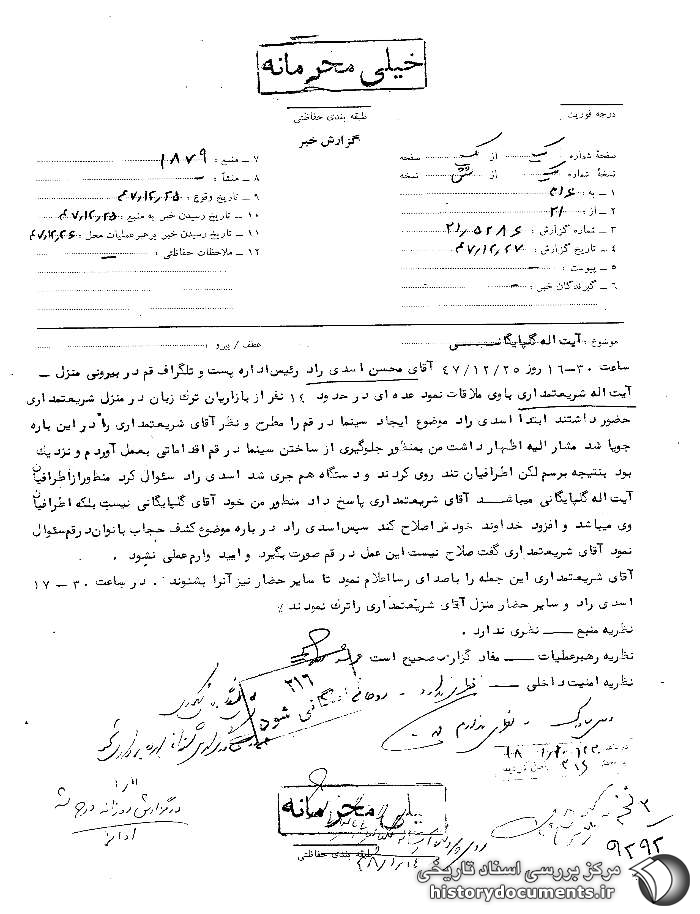 خیلی محرمانه
طبقه بندی حفاظتی
درجه فوریت :
گزارش خبر
صفحهٔ شماره یک از یک صفحه
نسخهٔ شماره یک از شش نسخه
۱ - به : ۳۱۶
۲ - از : ۲۱
۳ - شماره گزارش : ۲۱٫۵۲۸۶
۴ - تاریخ گزارش : ۴۷٫۱۲٫۲۷
۵ - پیوست : -
۶ - گیرندگان خبر : -
۷ - منبع : ۱۸۷۹
۸ - منشأ : -
۹ - تاریخ وقوع : ۴۷٫۱۲٫۲۵
۱۰ - تاریخ رسیدن خبر به منبع : ۴۷٫۱۲٫۲۵
۱۱ - تاریخ رسیدن خبر برهبر عملیات محل : ۴۷٫۱۲٫۲۶
۱۲ - ملاحظات حفاظتی : -
موضوع : آیت اله گلپایگانی
عطف / پیرو :
ساعت ۳۰-۱۶ روز ۴۷/۱۲/۲۵ آقای محسن اسدی راد رئیس اداره پست و تلگراف قم در بیرونی منزل -
آیت اله شریعتمداری باوی ملاقات نمود عده ای در حدود ۱۴ نفر از بازاریان ترک زبان در منزل شریعتمداری
حضور داشتند ابتدا اسدی راد موضوع ایجاد سینما در قم را مطرح و نظر آقای شریعتمداری را در این باره
جویا شد مشار الیه اظهار داشت من بمنظور جلوگیری از ساختن سینما در قم اقداماتی بعمل آوردم و نزدیک
بود بنتیجه برسم لکن اطرافیان تند روی کردند و دستگاه هم جری شد اسدی راد سئوال کرد منظور از اطرافیان
آیت اله گلپایگانی میباشد آقای شریعتمداری پاسخ داد منظور من خود آقای گلپایگانی نیست بلکه اطرافیان
وی میباشد و افزود خداوند خودش اصلاح کند سپس اسدی راد در باره موضوع کشف حجاب بانوان در قم سئوال
نمود آقای شریعتمداری گفت صلاح نیست این عمل در قم صورت بگیرد و امید وارم عملی نشود .
آقای شریعتمداری این جمله را باصدای رسا اعلام نمود تا سایر حضار نیز آنرا بشنوند . در ساعت ۳۰ - ۱۷
اسدی راد و سایر حضار منزل آقای شریعتمداری را ترک نمودند
نظریه منبع - نظری ندارد .
نظریه رهبر عملیات - مفاد گزارش صحیح است
نظریه امنیت داخلی - نظری ندارد -
۳۱۶
بایگانی شود
در گزارش روزانه درج شد
خیلی محرمانه
طبقه بندی حفاظتی
۴۸/۱/۱۴
۹۲۹۲
مرکز بررسی اسناد تاریخی
historydocuments.ir